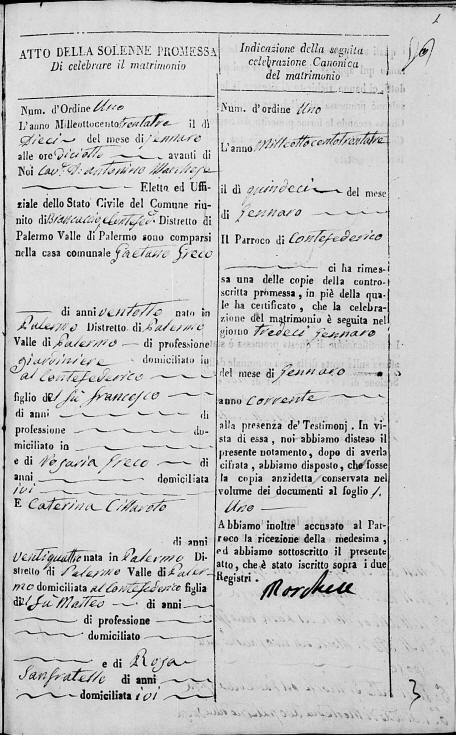 ATTO DELLA SOLENNE PROMESSA
Di celebrare il matrimonio
Num. d'Ordine Uno
L'anno Milleottocento trentatre il dì
Dieci del mese di Jennaro
alle ore diciotto avanti di
Noi Cav. D. Antonino Marchese
Eletto ed Uffi-
ziale dello Stato Civile del Comune riu-
nito di Brancaccio, Contefed.co Distretto di
Palermo Valle di Palermo sono comparsi
nella casa comunale Gaetano Greco
di anni ventotto nato in
Palermo Distretto di Palermo
Valle di Palermo di professione
giardiniere domiciliato in
al Contefederico
figlio del fù Francesco
di anni di
professione do-
miciliato in
e di Rosaria Greco di
anni domiciliata
ivi
E Caterina
di anni
ventiquattro nata in Palermo Di-
stretto di Palermo Valle di Paler-
mo domiciliata al Contefederico figlia
del fù Matteo di anni
di professione
domiciliato
e di Rosa
Sanfratello di anni
domiciliata ivi
Indicazione della seguita
celebrazione Canonica
del matrimonio
Num. d'ordine Uno
L'anno Milleottocentotrentatre
il dì quindeci del mese
di Jennaro
Il Parroco di Contefederico
ci ha rimes-
sa una delle copie della contro-
scritta promessa, in piè della qua-
le ha certificato, che la celebra-
zione del matrimonio è seguita nel
giorno tredeci Jennaro
del mese di Jennaro
anno corrente
alla presenza de' Testimonj. In vi-
sta di essa, noi abbiamo disteso il
presente notamento, dopo di averla
cifrata, abbiamo disposto, che fosse
la copia anzidetta conservata nel
volume dei documenti al foglio 1.
Uno
Abbiamo inoltre accusato al Par-
roco la ricezione della medesima,
ed abbiamo sottoscritto il presente
atto, che è stato iscritto sopra i due
Registri.
Marchese
3